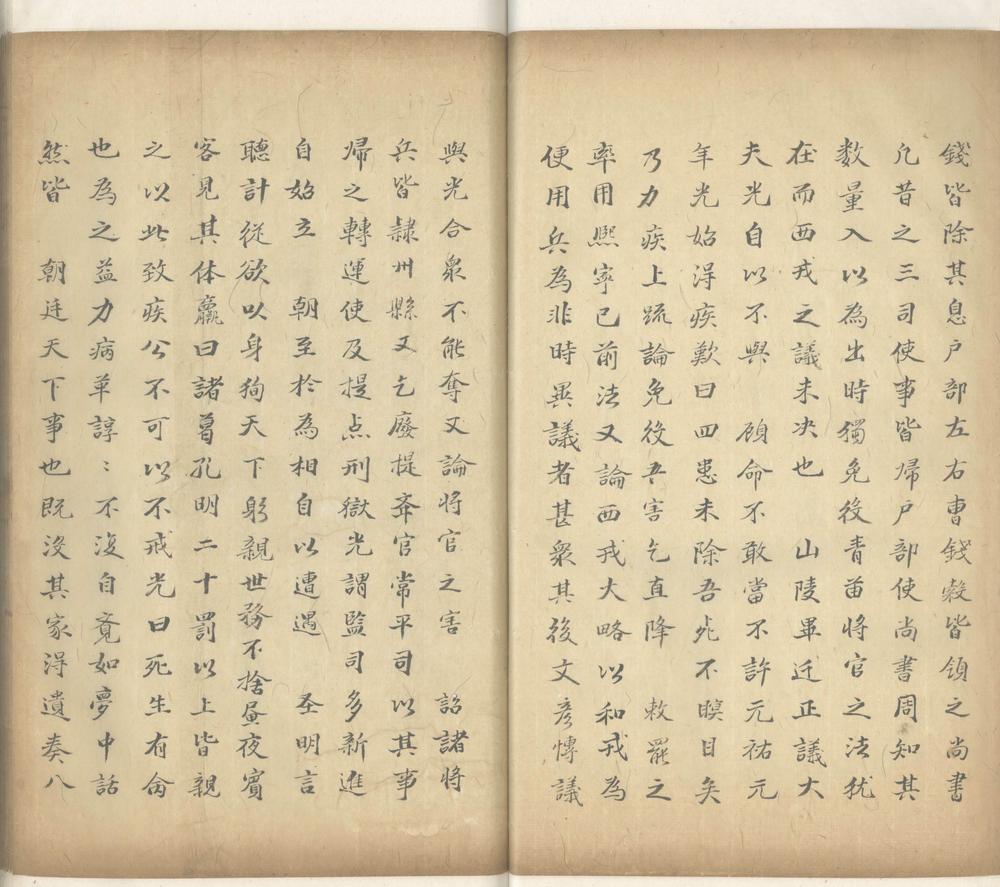 錢皆除其息户部左右曹錢穀皆領之尚書
凡昔之三司使事皆歸户部使尚書周知其
数量入以為出時獨免役青苗将官之法犹
在而西戎之議未决也 山陵畢迁正議大
夫光自以不與 顧命不敢當不許元祐元
年光始得疾歎曰四患未除吾死不瞑目矣
乃力疾上䟽論免役五害乞直降 敕罷之
率用熙寕已前法又論西戎大略以和戎為
便用兵為非時異議者甚衆其後文彦愽議
與光合衆不能奪又論将官之害 詔諸将
兵皆隷州縣又乞廢提举官常平司以其事
歸之轉運使及提点刑獄光謂監司多新進
自始立 朝至於為相自以遭遇 圣明言
聽計從欲以身狥天下躬親世務不捨昼夜賓
客見其体羸曰諸葛孔明二十罰以上皆親
之以此致疾公不可以不戒光曰死生有命
也為之益力病革諄〻不復自覺如夢中話
然皆 朝廷天下事也既沒其家得遺奏八